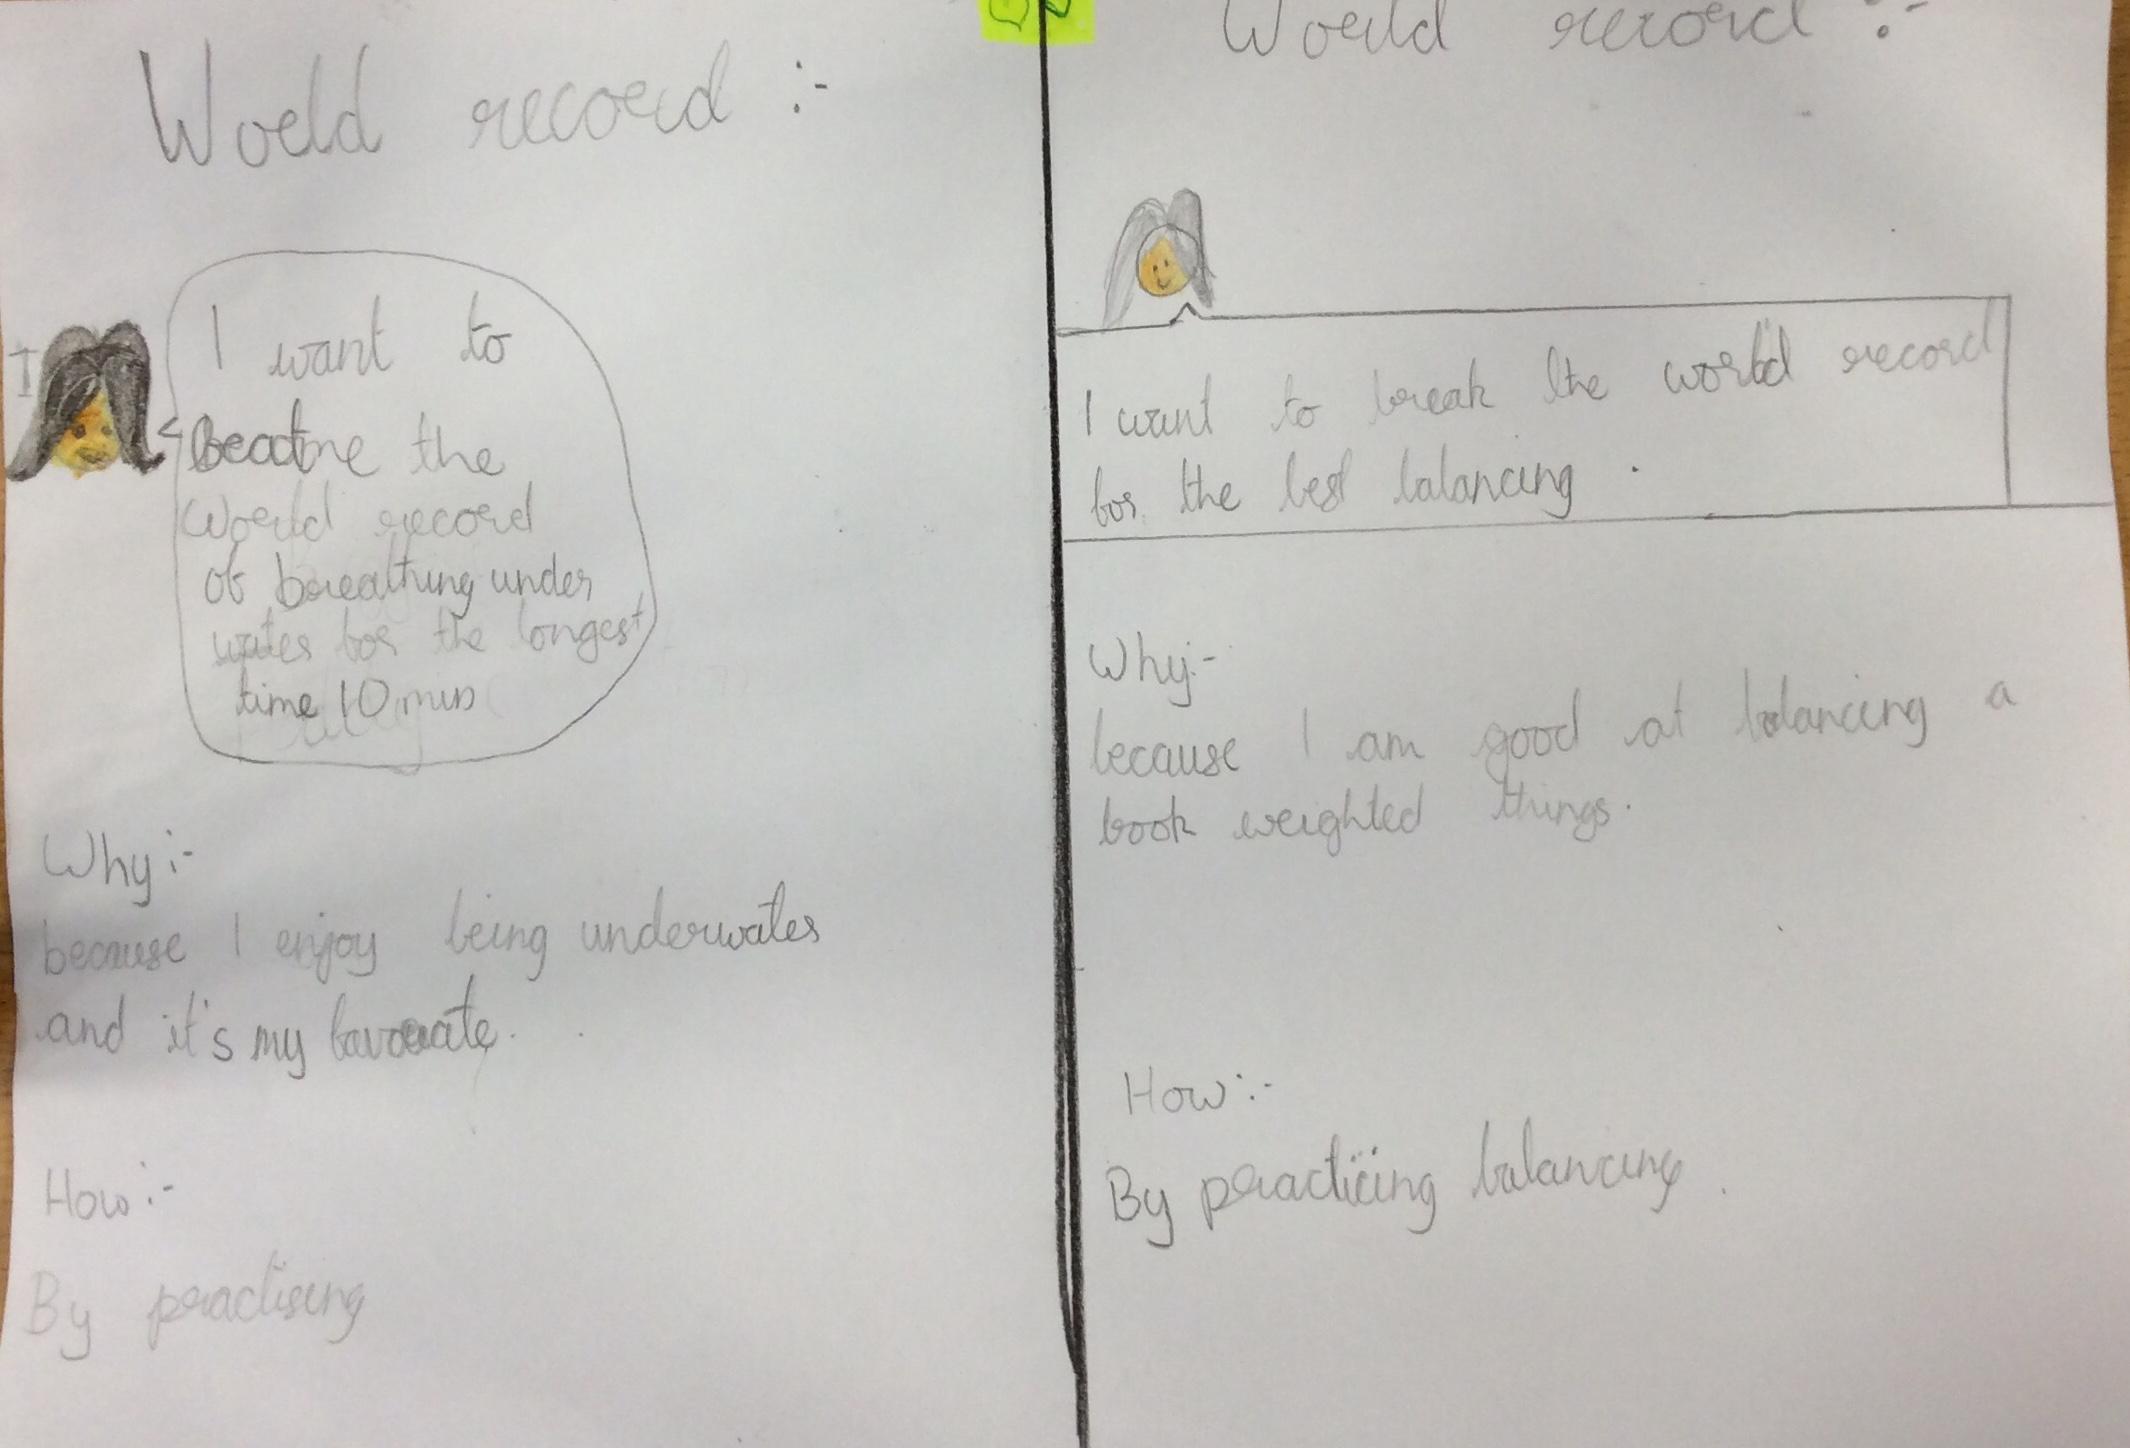 World record :-
I want to
Beat the
World record
of breathing under
water for the longest
time 10 mins
Why :-
because I enjoy being underwater
and it's my favourate.
How :-
By practising
World record :-
I want to break the world record
for the best balancing .
Why:-
because I am good at balancing a
book weighted things.
How :-
By practicing balancing .